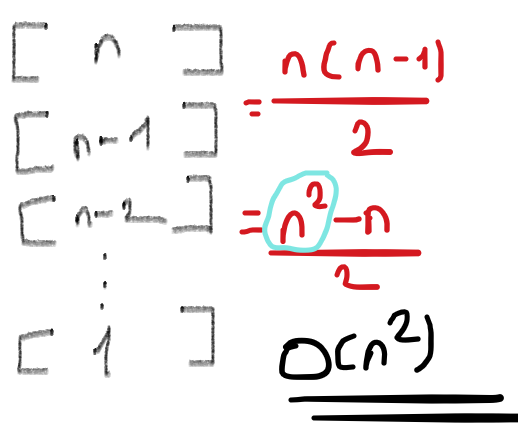 [ n ]
[ n-1 ]
[ n-2 ]
⋮
[ 1 ]
= n(n-1) / 2
= n² - n / 2
O(n²)